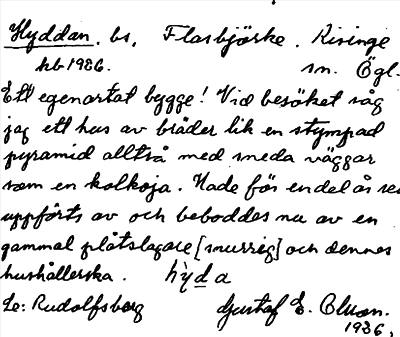 Hyddan. bs, Flarbjörke. Risinge
hb 1926. sn. Ögl.
Ett egenartat bygge! Vid besöket såg
jag ett hus av bräder lik en stympad
pyramid alltså med sneda väggar
som en kolkoja. Hade för en del år se
uppförts av och beboddes nu av en
gammal plåtslagare [snurrig] och dennes
hushållerska. hyda
Le: Rudolfsberg Gustaf E. Olson.
1926.